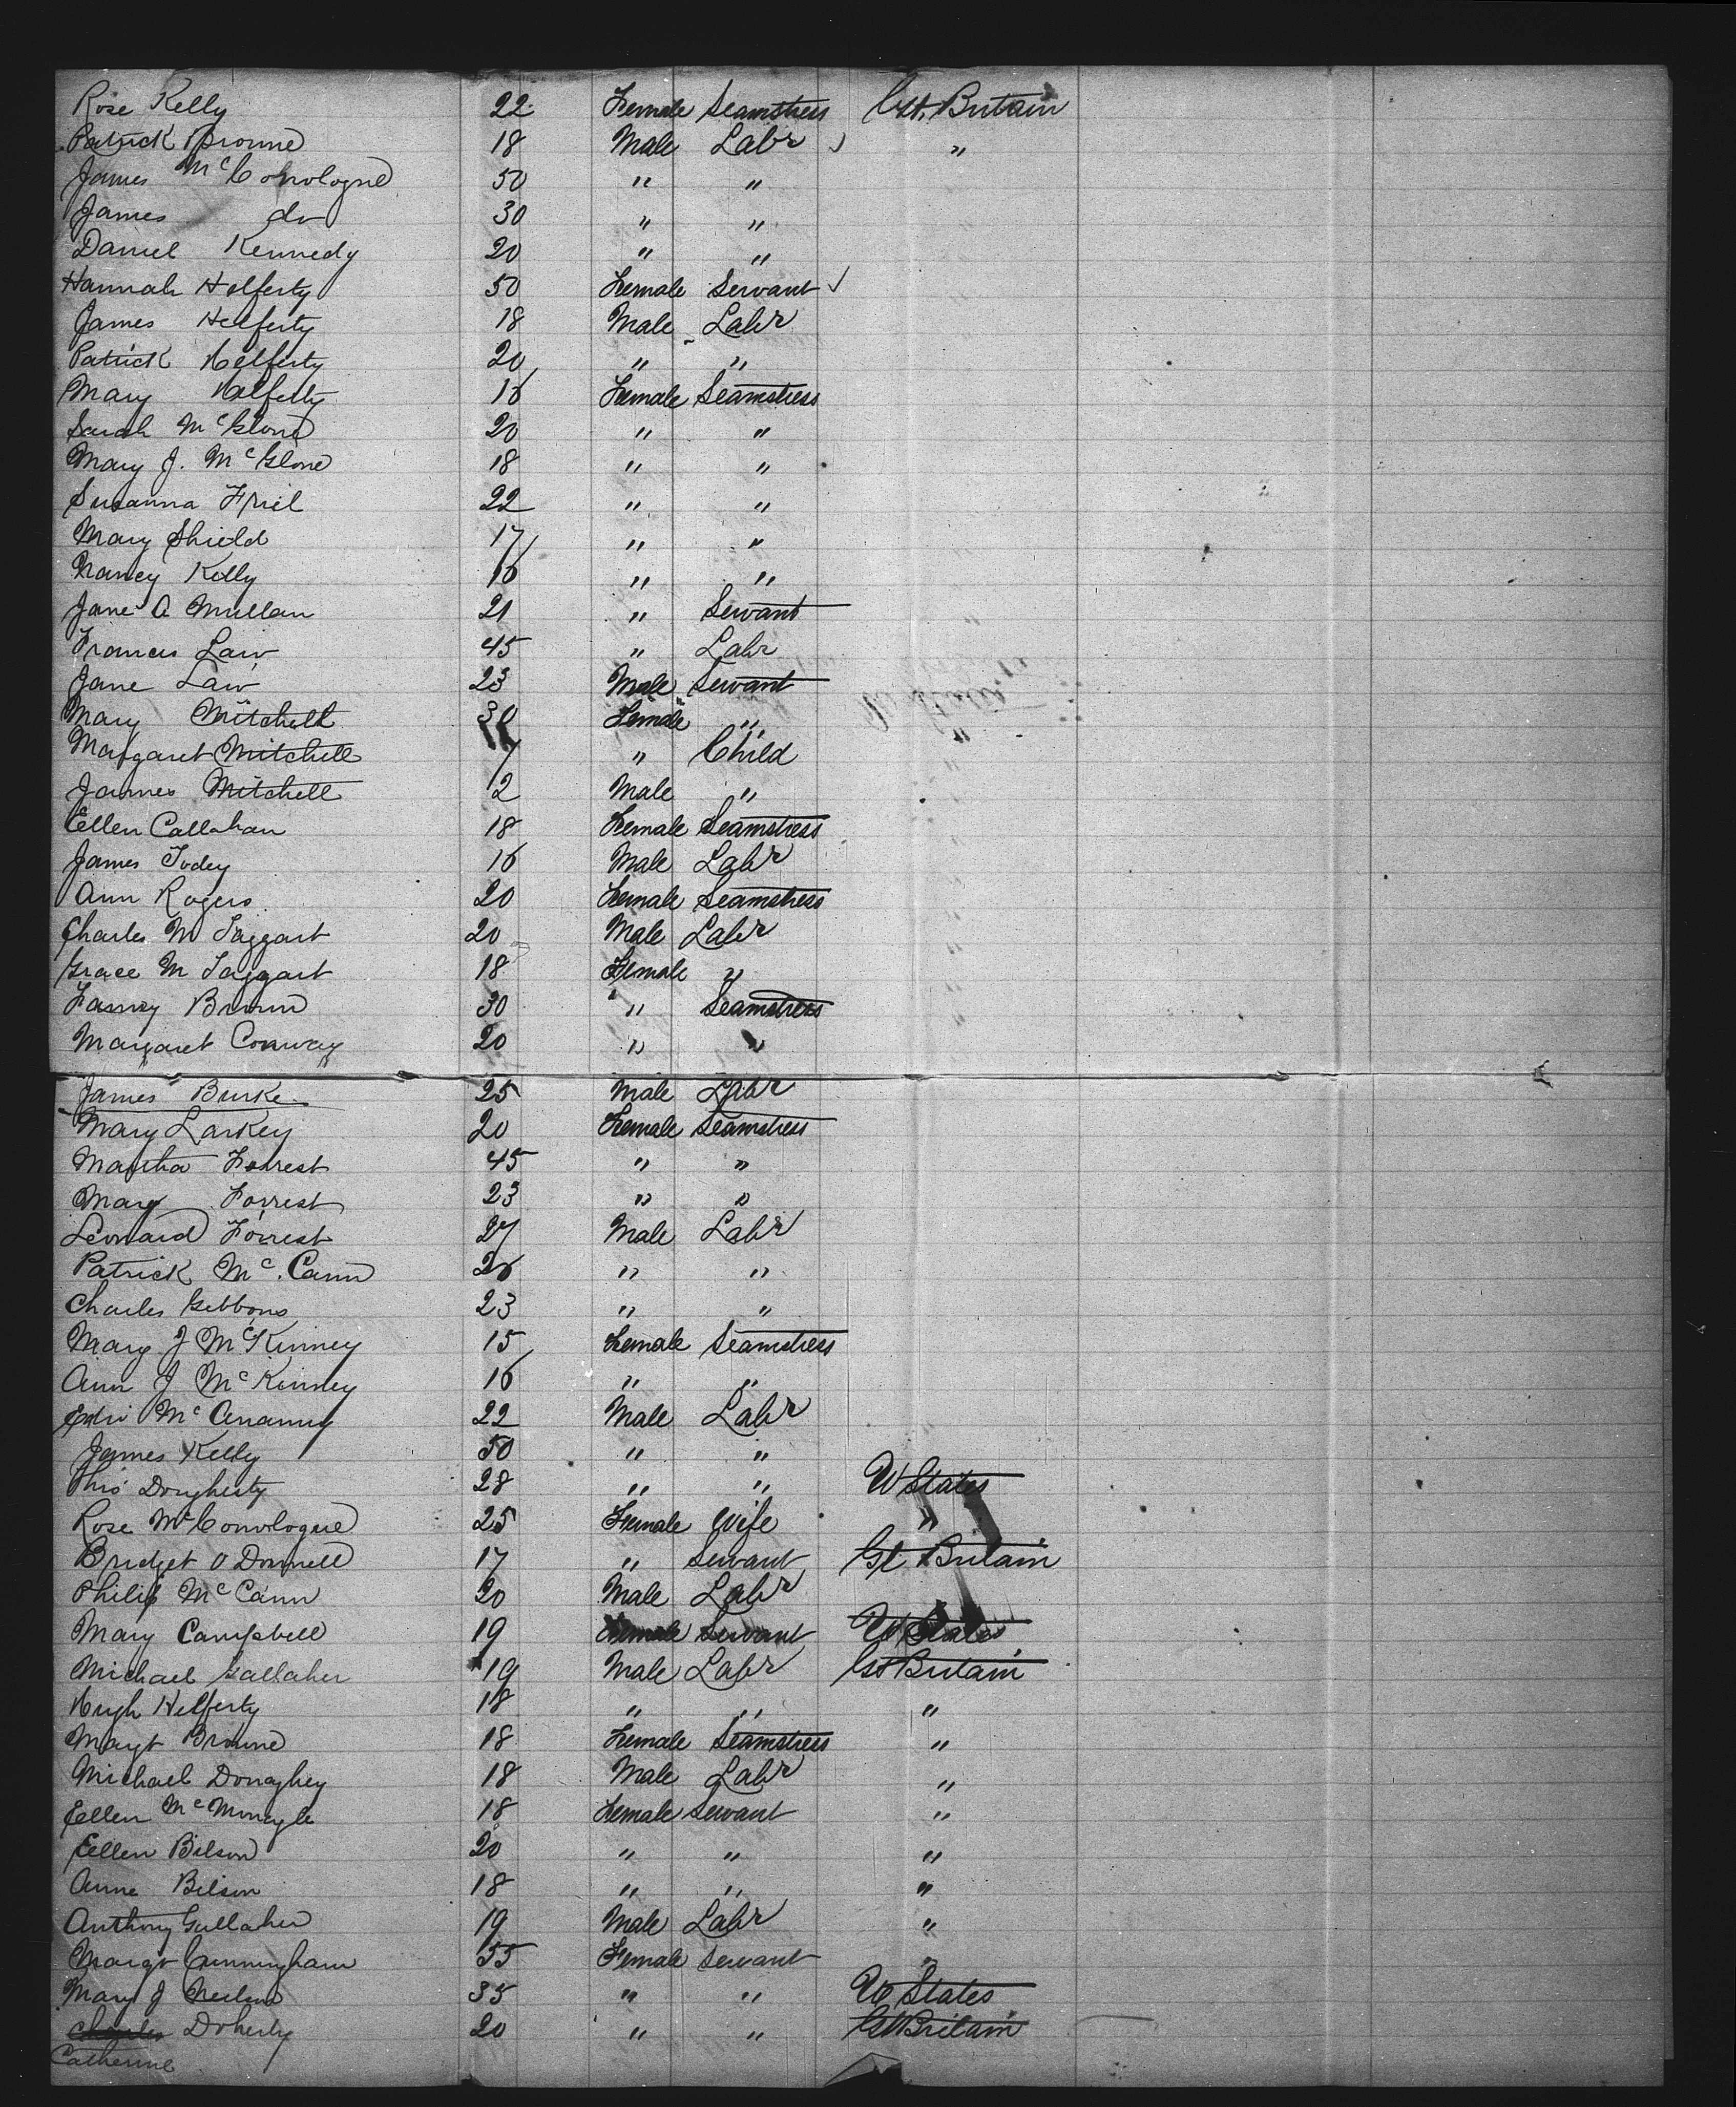 Rose Kelly 22 Female Seamstress Gt. Britain
Patrick Browne 18 Male Labr "
James McConologue 50 " "
James do 30 " "
Daniel Kennedy 20 " "
Hannah Helferty 50 Female Servant
James Helferty 18 Male Labr
Patrick Helferty 20 " "
Mary Helferty 16 Female Seamstress
Sarah McGlone 20 " "
Mary J. McGlone 18 " "
Susanna Friel 22 " "
Mary Shield 17 " "
Nancy Kelly 16 " "
Jane A Mullan 21 " Servant
Frances Law 45 " Labr
Jane Law 23 Male Servant
Mary Mitchell 30 Female "
Margaret Mitchell 7 " Child
James Mitchell 2 Male "
Ellen Callahan 18 Female Seamstress
James 16 Male Labr
Ann Rogers 20 Female Seamstress
Charles M Taggart 20 Male Labr
Grace M Taggart 18 Female "
Fanny Brown 30 " Seamstress
Margaret Conway 20 " "
James Burke 25 Male Labr
Mary Larkey 20 Female Seamstress
Martha Forrest 45 " "
Mary Forrest 23 " "
Leonard Forrest 27 Male Labr
Patrick Mc. Cann 26 " "
Charles Gibbons 23 " "
Mary J McKinney 15 Female Seamstress
Ann J McKinney 16 " "
22 Male Labr
James Kelly 50 " "
Thos Dougherty 28 " " U States
Rose McConologue 25 Female Wife "
Bridget O Donnell 17 " Servant Gt Britain
Philip McCann 20 Male Labr
Mary Campbell 19 Female Servant U States
Michael Gallaher 19 Male Labr Gt Britain
Hugh Helferty 18 " " "
Margt Browne 18 Female Seamstress "
Michael Donaghey 18 Male Labr "
Ellen McMonegle 18 Female Servant "
Ellen Bilson 20 " " "
Anne Bilson 18 " " "
Anthony Gallaher 19 Male Labr "
Margt Cunningham 55 Female Servant "
Mary J 35 " " U States
Charles Doherty 20 " " Gt Britain
Catherine